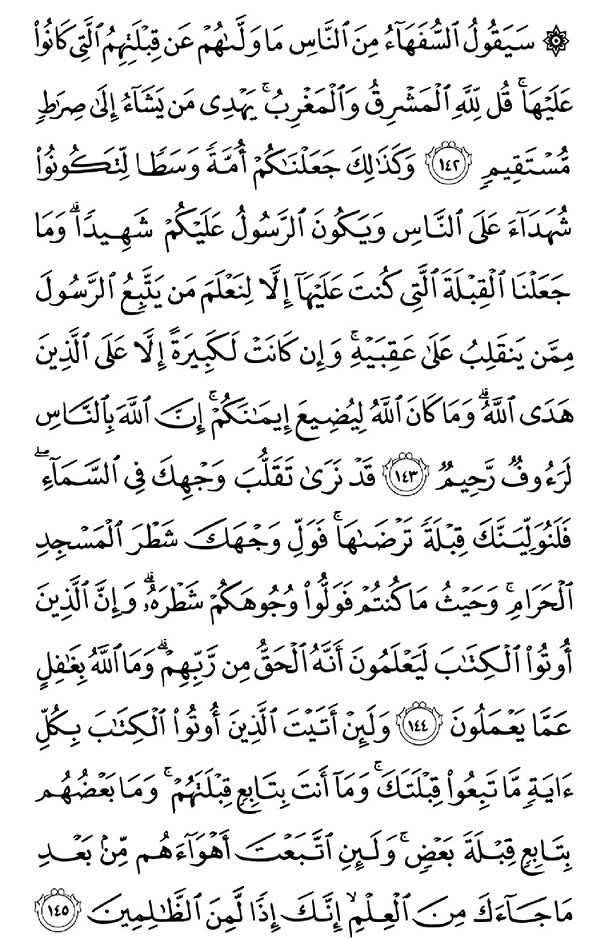 ۞ سَيَقُولُ ٱلسُّفَهَآءُ مِنَ ٱلنَّاسِ مَا وَلَّىٰهُمْ عَن قِبْلَتِهِمُ ٱلَّتِى كَانُوا۟
عَلَيْهَا ۚ قُل لِّلَّهِ ٱلْمَشْرِقُ وَٱلْمَغْرِبُ ۚ يَهْدِى مَن يَشَآءُ إِلَىٰ صِرَٰطٍ
مُّسْتَقِيمٍ ١٤٢ وَكَذَٰلِكَ جَعَلْنَٰكُمْ أُمَّةً وَسَطًا لِّتَكُونُوا۟
شُهَدَآءَ عَلَى ٱلنَّاسِ وَيَكُونَ ٱلرَّسُولُ عَلَيْكُمْ شَهِيدًا ۗ وَمَا
جَعَلْنَا ٱلْقِبْلَةَ ٱلَّتِى كُنتَ عَلَيْهَآ إِلَّا لِنَعْلَمَ مَن يَتَّبِعُ ٱلرَّسُولَ
مِمَّن يَنقَلِبُ عَلَىٰ عَقِبَيْهِ ۚ وَإِن كَانَتْ لَكَبِيرَةً إِلَّا عَلَى ٱلَّذِينَ
هَدَى ٱللَّهُ ۗ وَمَا كَانَ ٱللَّهُ لِيُضِيعَ إِيمَٰنَكُمْ ۚ إِنَّ ٱللَّهَ بِٱلنَّاسِ
لَرَءُوفٌ رَّحِيمٌ ١٤٣ قَدْ نَرَىٰ تَقَلُّبَ وَجْهِكَ فِى ٱلسَّمَآءِ ۖ
فَلَنُوَلِّيَنَّكَ قِبْلَةً تَرْضَىٰهَا ۚ فَوَلِّ وَجْهَكَ شَطْرَ ٱلْمَسْجِدِ
ٱلْحَرَامِ ۚ وَحَيْثُ مَا كُنتُمْ فَوَلُّوا۟ وُجُوهَكُمْ شَطْرَهُۥ ۗ وَإِنَّ ٱلَّذِينَ
أُوتُوا۟ ٱلْكِتَٰبَ لَيَعْلَمُونَ أَنَّهُ ٱلْحَقُّ مِن رَّبِّهِمْ ۗ وَمَا ٱللَّهُ بِغَٰفِلٍ
عَمَّا يَعْمَلُونَ ١٤٤ وَلَئِنْ أَتَيْتَ ٱلَّذِينَ أُوتُوا۟ ٱلْكِتَٰبَ بِكُلِّ
ءَايَةٍ مَّا تَبِعُوا۟ قِبْلَتَكَ ۚ وَمَآ أَنتَ بِتَابِعٍ قِبْلَتَهُمْ ۚ وَمَا بَعْضُهُم
بِتَابِعٍ قِبْلَةَ بَعْضٍ ۚ وَلَئِنِ ٱتَّبَعْتَ أَهْوَآءَهُم مِّنۢ بَعْدِ
مَا جَآءَكَ مِنَ ٱلْعِلْمِ ۙ إِنَّكَ إِذًا لَّمِنَ ٱلظَّٰلِمِينَ ١٤٥